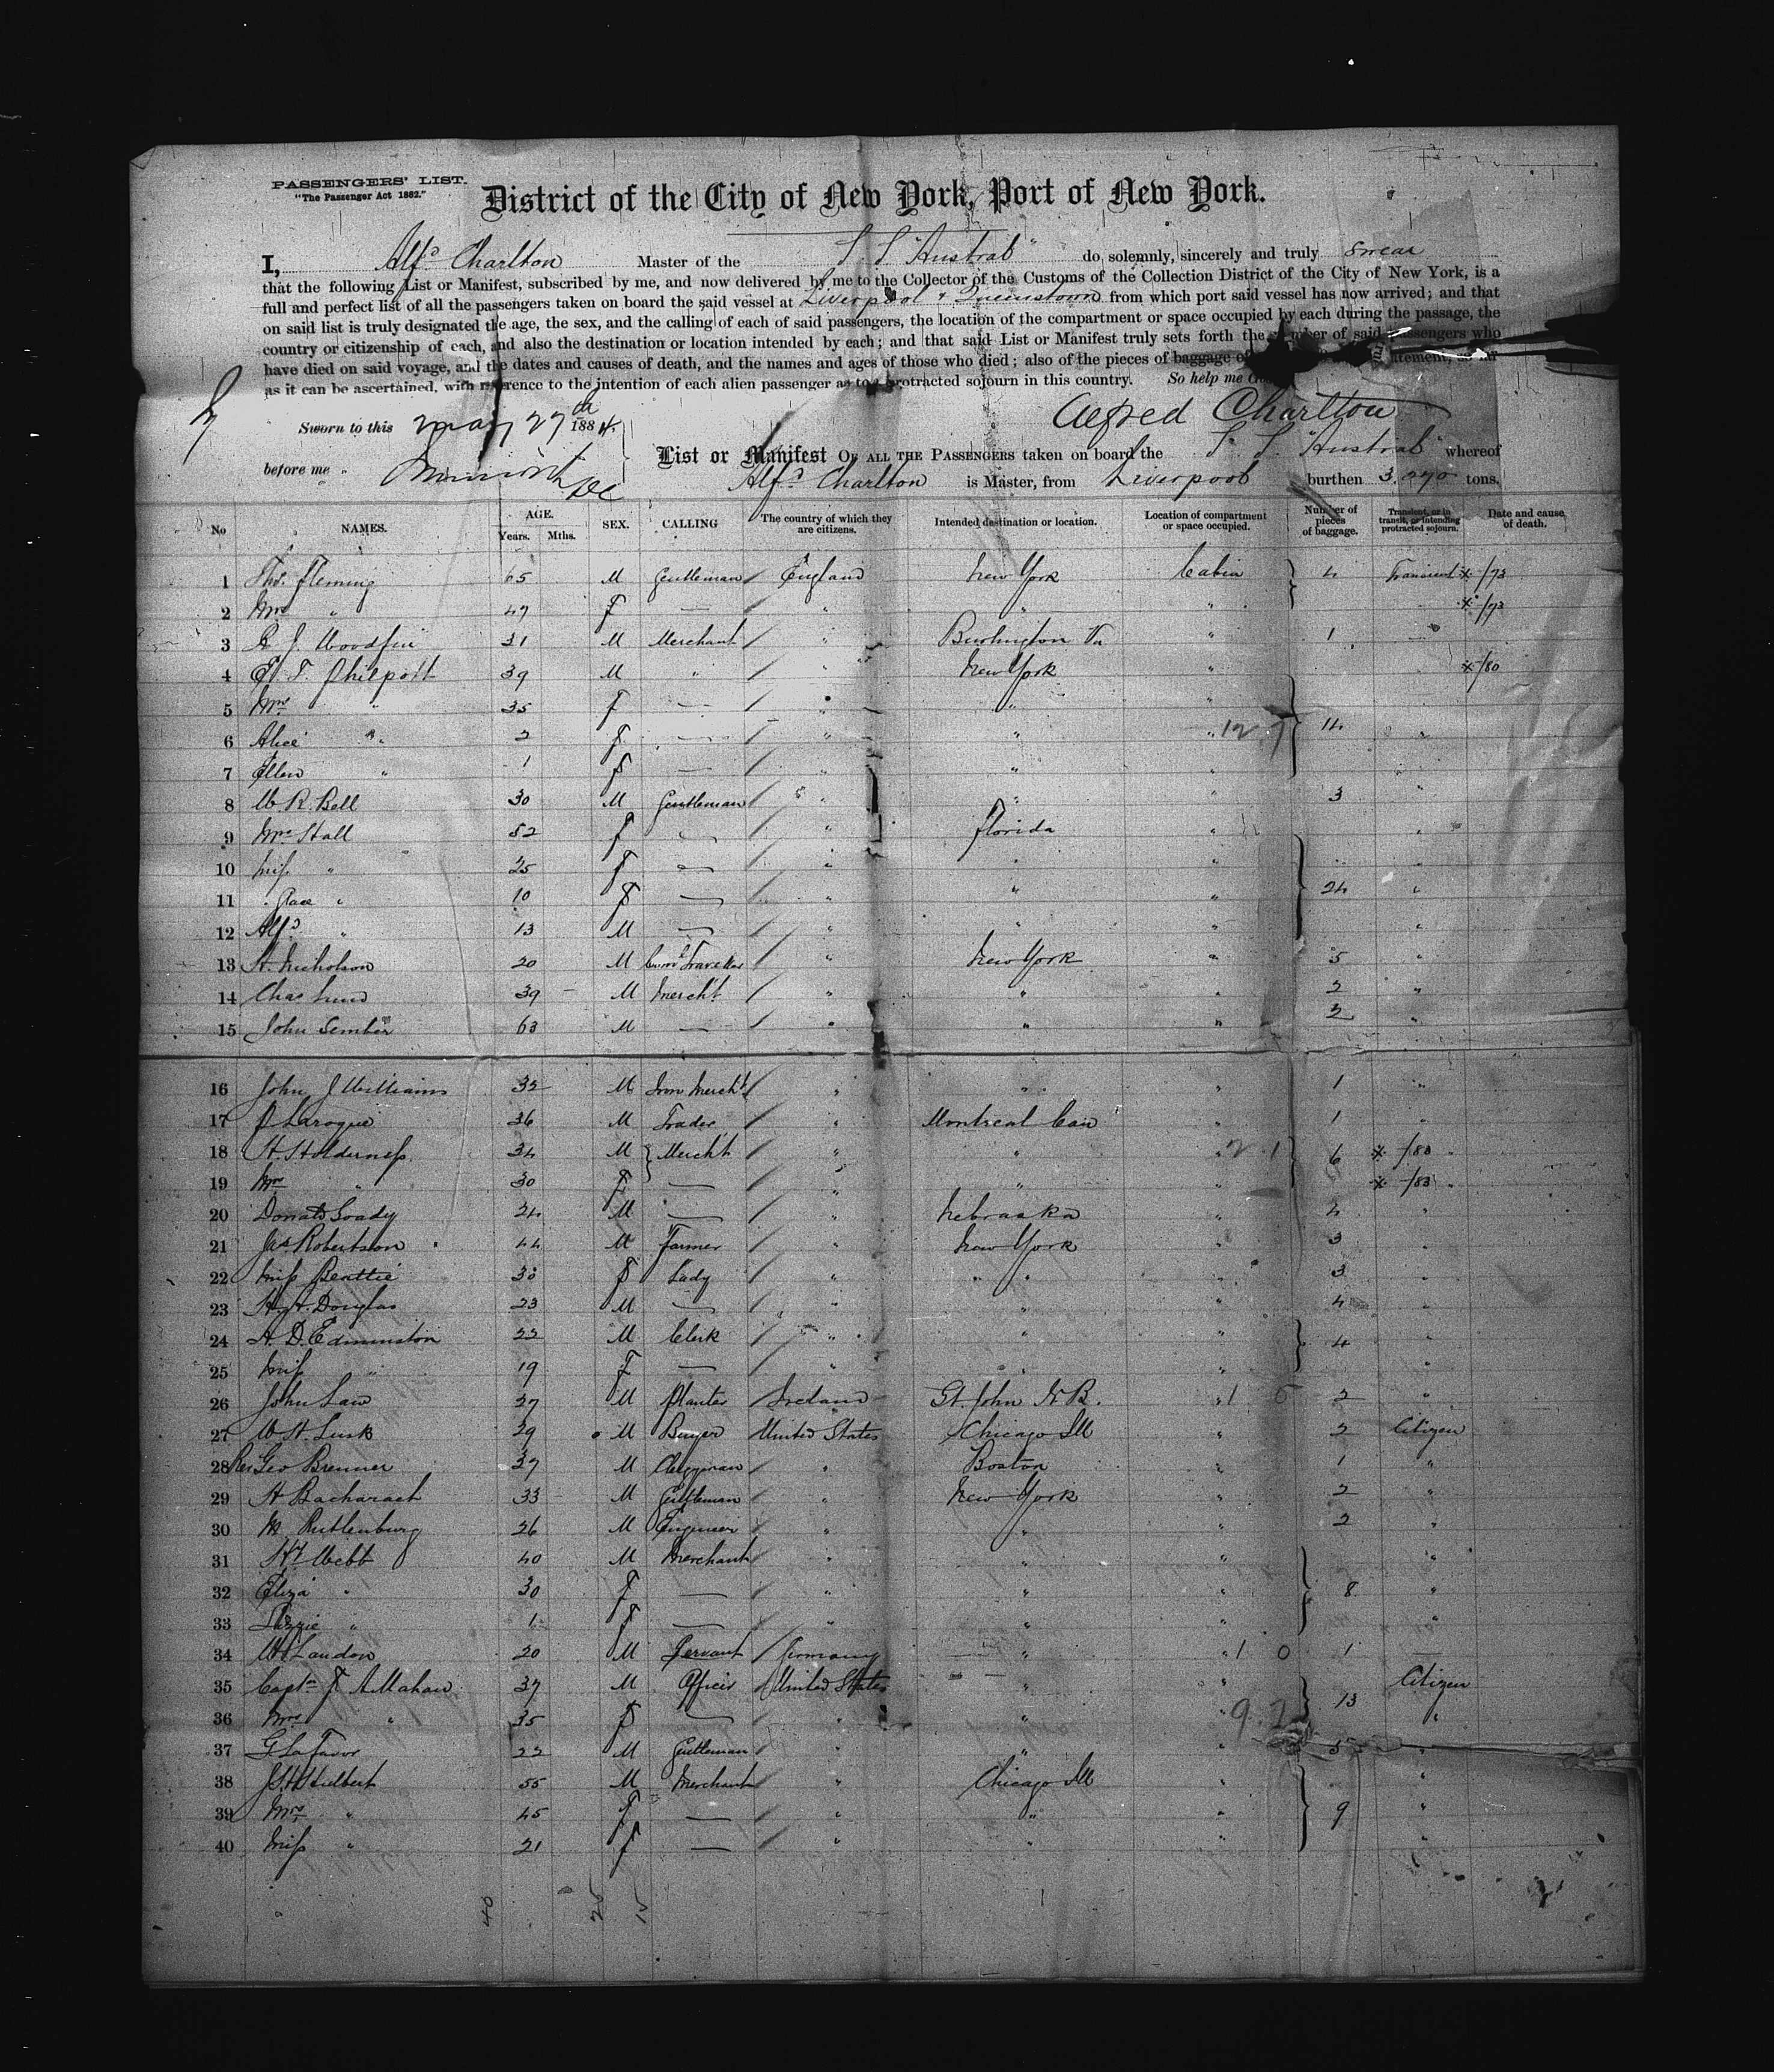 PASSENGERS' LIST.
"The Passenger Act 1882."
District of the City of New York, Port of New York.
I, Alfd Charlton Master of the S. S "Austral" do solemnly, sincerely and truly swear
that the following List or Manifest, subscribed by me, and now delivered by me to the Collector of the Customs of the Collection District of the City of New York, is a
full and perfect list of all the passengers taken on board the said vessel at Liverpool & Queenstown from which port said vessel has now arrived; and that
on said list is truly designated the age, the sex, and the calling of each of said passengers, the location of the compartment or space occupied by each during the passage, the
country or citizenship of each, and also the destination or location intended by each; and that said List or Manifest truly sets forth the number of said passengers who
have died on said voyage, and the dates and causes of death, and the names and ages of those who died; also of the pieces of baggage of
as it can be ascertained, with reference to the intention of each alien passenger as to a protracted sojourn in this country. So help me
Sworn to this May 27th 1884.
Alfred Charlton
before me
List or Manifest OF ALL THE PASSENGERS taken on board the S. S. "Austral" whereof
Alfd Charlton is Master, from Liverpool burthen 3.270 tons.
No NAMES. AGE. Years. Mths. SEX. CALLING The country of which they are citizens. Intended destination or location. Location of compartment or space occupied. Number of pieces of baggage. Transient, or in transit, or intending protracted sojourn. Date and cause of death.
1 Thos. Fleming 65 M Gentleman England New York Cabin 4 Transient
2 Mrs " 47 F — " " "
3 M Merchant " Burlington " 1
4 E. T. Philpott 39 M " " New York "
5 Mrs " 35 F — " " "
6 Alice " 2 F — " " " 14 "
7 Ellen " 1 F — " " "
8 W R. Bell 30 M Gentleman " " " 3 "
9 Mrs Hall 52 F " " Florida " "
10 Miss " 25 F — " " "
11 " Grace " 10 F — " " " 24 "
12 Alfd " 13 M — " " " "
13 H. Nicholson 20 M Comml Traveller " New York " 5 "
14 Chas Lund 39 M Mercht " " " 2 "
15 John 63 M — " " " 2 "
16 John J Williams 32 M Iron Mercht " " " 1 "
17 P Laroque 36 M Trader " Montreal Can " 1 "
18 H. Holderness 34 M Mercht " " " 6 "
19 Mrs " 30 F — " " "
20 Donald 24 M — " Nebraska " "
21 Jas Robertson 44 M Farmer " New York " 3 "
22 Miss Beattie 30 F Lady " " " 3 "
23 Douglas 23 M — " " " 4 "
24 A. D. Edminston 22 M Clerk " " " 4 "
25 Miss " 19 F — " " " "
26 John Law 27 M Planter Ireland St. John N.B. " 2 "
27 W H. Lusk 29 M Buyer United States Chicago Ill " 2 Citizen
28 Rev Geo Brenner 37 M Clergyman " Boston " 1 "
29 H Bacharach 33 M Gentleman " New York " 2 "
30 M Ruttenburg 26 M Engineer " " " 2 "
31 Hy Webb 40 M Merchant " " " "
32 Eliza " 30 F — " " " 8 "
33 Lizzie " 1 F — " " " "
34 W Landon 20 M Servant Germany " " 1 —
35 Captn F A Mahan 37 M Officer United States " " 13 Citizen
36 Mrs " 35 F — " " " "
37 G LaFavor 22 M Gentleman " " " 5 "
38 J. H. Hulbert 55 M Merchant " Chicago Ill " "
39 Mrs " 45 F — " " " 9 "
40 Miss " 21 F — " " " "
40 25 15